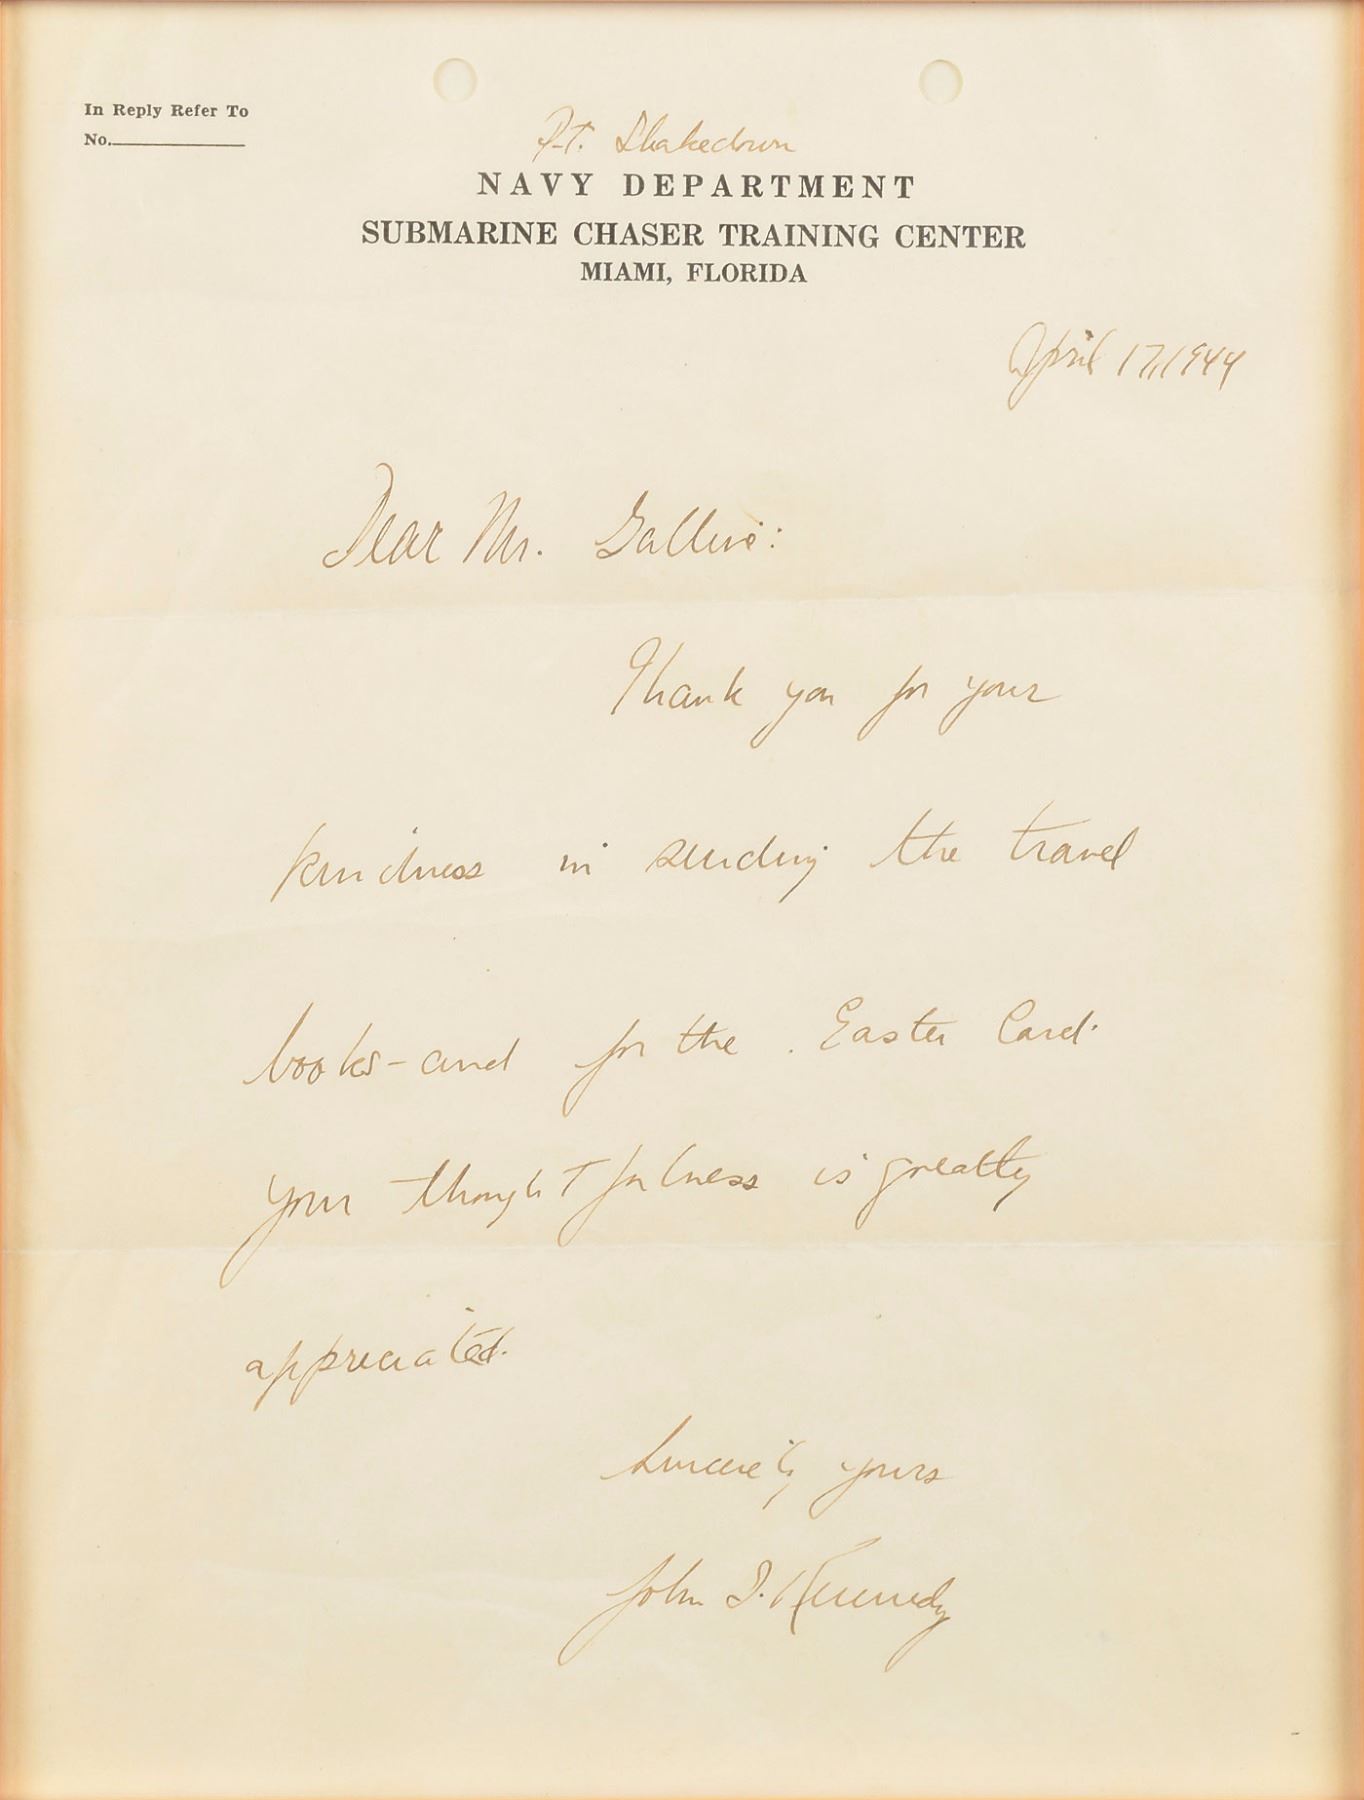 In Reply Refer To
No.
P.T. Shakedown
NAVY DEPARTMENT
SUBMARINE CHASER TRAINING CENTER
MIAMI, FLORIDA
April 17, 1944
Dear Mr.
Thank you for your
kindness in sending the travel
books - and for the Easter Card.
Your thoughtfulness is greatly
appreciated.
Sincerely yours
John F. Kennedy